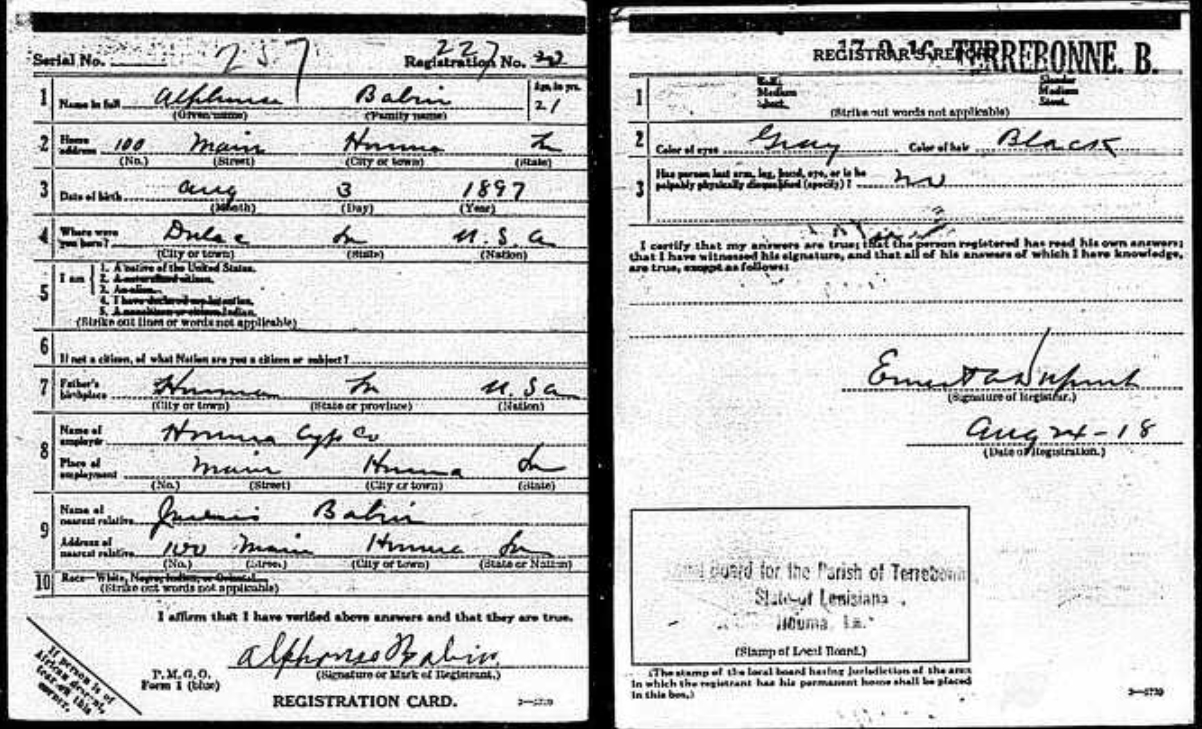 Serial No. 257 Registration No. 227
1 Name in full Alphonse Babin Age, in yrs. 21
(Given name) (Family name)
2 Home address 100 Main Houma La
(No.) (Street) (City or town) (State)
3 Date of birth Aug 3 1897
(Month) (Day) (Year)
4 Where were you born? Dulac La U. S. A
(City or town) (State) (Nation)
5 I am
1. A native of the United States.
2. A naturalized citizen.
3. An alien.
4. I have declared my intention.
5. A noncitizen or citizen Indian.
(Strike out lines or words not applicable)
6 If not a citizen, of what Nation are you a citizen or subject?
7 Father's birthplace Houma La U. S a
(City or town) (State or province) (Nation)
8 Name of employer Houma Cyp Co
Place of employment Main Houma La
(No.) (Street) (City or town) (State)
9 Name of nearest relative Babin
Address of nearest relative 100 Main Houma La
(No.) (Street) (City or town) (State or Nation)
10 Race—White, Negro, Indian, or Oriental
(Strike out words not applicable)
I affirm that I have verified above answers and that they are true.
Alphonse Babin
(Signature or Mark of Registrant.)
P. M. G. O.
Form 1 (blue)
REGISTRATION CARD.
If person is of
African descent,
tear off this
corner.
REGISTRAR'S REPORT
17-9-16 TERREBONNE. B.
1 Tall Slender
Medium Medium
Short Stout
(Strike out words not applicable)
2 Color of eyes Gray Color of hair Black
3 Has person lost arm, leg, hand, eye, or is he
palpably physically disqualified (specify)? no
I certify that my answers are true; that the person registered has read his own answers;
that I have witnessed his signature, and that all of his answers of which I have knowledge,
are true, except as follows:
(Signature of Registrar.)
Aug 24-18
(Date of Registration.)
Local Board for the Parish of Terrebonne
State of Louisiana
Houma, La.
(Stamp of Local Board.)
(The stamp of the local board having jurisdiction of the area
in which the registrant has his permanent home shall be placed
in this box.)